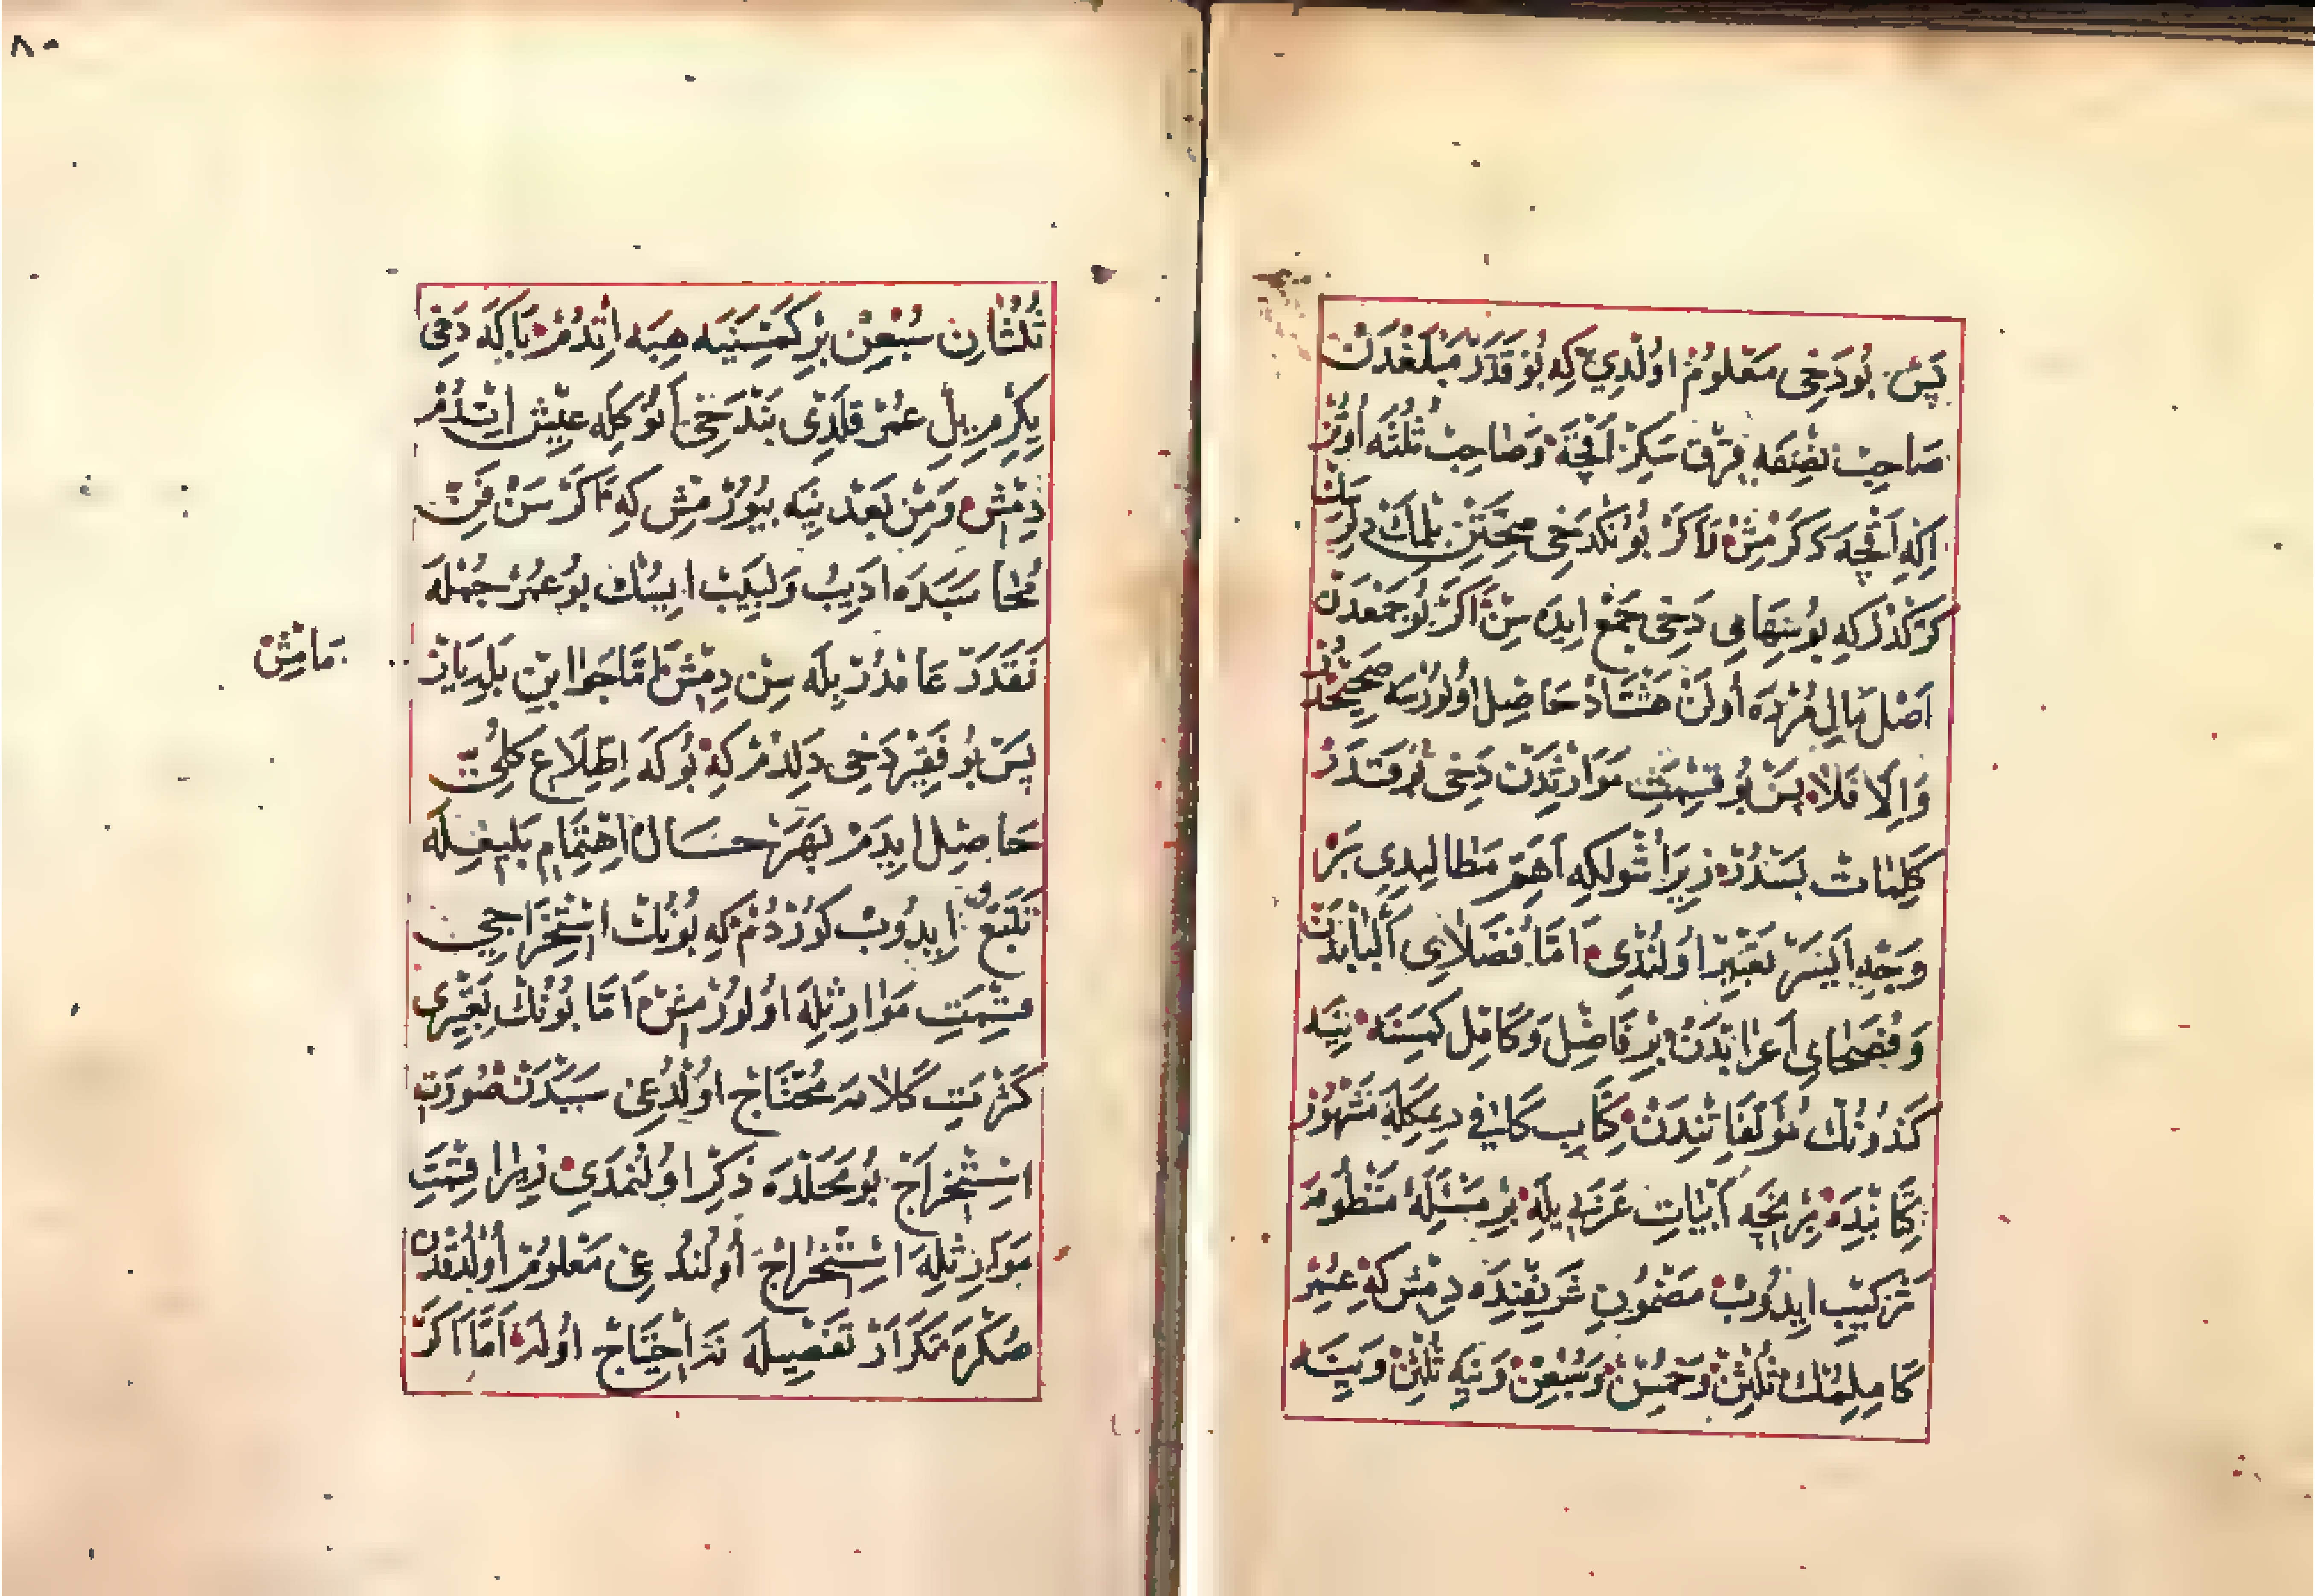 پس بو دخی معلوم اولدی که بو قدر مبلغدن
صاحب نصفه قرق سکز اقچه و صاحب ثلثه اوتز
ایکی اقچه دکرمش لاکر بونکدخی صحتن بلمك دلرسن
کرکدرکه بو سهامی دخی جمع ایده سن اکر بو جمعدن
اصل مال مزده اولن هشتاد حاصل اولورسه صحیحدر
والا فلا پس بو قسمت مواریثدن دخی بو قدر
کلمات بسدر زیرا شولکه اهم مطالیدی بر
وجه ایسر تعبیر اولندی اما فضلای البابدن
و فصحای اعرابدن بر فاضل و کامل کمسنه ینه
کندونك مؤلفاتندن کتاب کافی دیمکله مشهور
کتابنده بر نجه ابیات عربیه یله بر مسئله منظومه
ترکیب ایدوب مضمون شریفنده دیمش که عمر
کاملمك ثلثن و خمسن و سبعن و ینه ثلثن و ینه
ثلثان سبعن بر کمسنیه هبه اتدم باکه دخی
یکرمی ییل عمر قلدی بندخی انوکله عیش اتدم
دیمش ومن بعد ینه بیورمش که اکر سن فن
سبده ادیب ولبیب ایسك بو عمر جمله
نقدر عامدر بله سن دیمش اما جوابن بلدیاز
مامش
پس بو فقیر دخی دلدم که بوکه اطلاع کلی
حاصل ایدم بهر حال اهتمام بلیغله
تتبع ایدوب کوردم که بونك استخراجی
قسمت مواریثله اولورمش اما بونك تعبیری
کثرت کلامه محتاج اولدوغی سببدن صورت
استخراج بو محلده ذکر اولنمدی زیرا قسمت
مواریثله استخراج اولندوغی معلوم اولدقدن
صکره تکرار تفصیله نه احتیاج اوله اما اکر